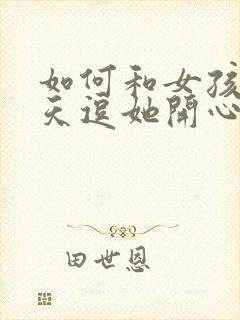 如何和女孩
天逗她開心
田世恩